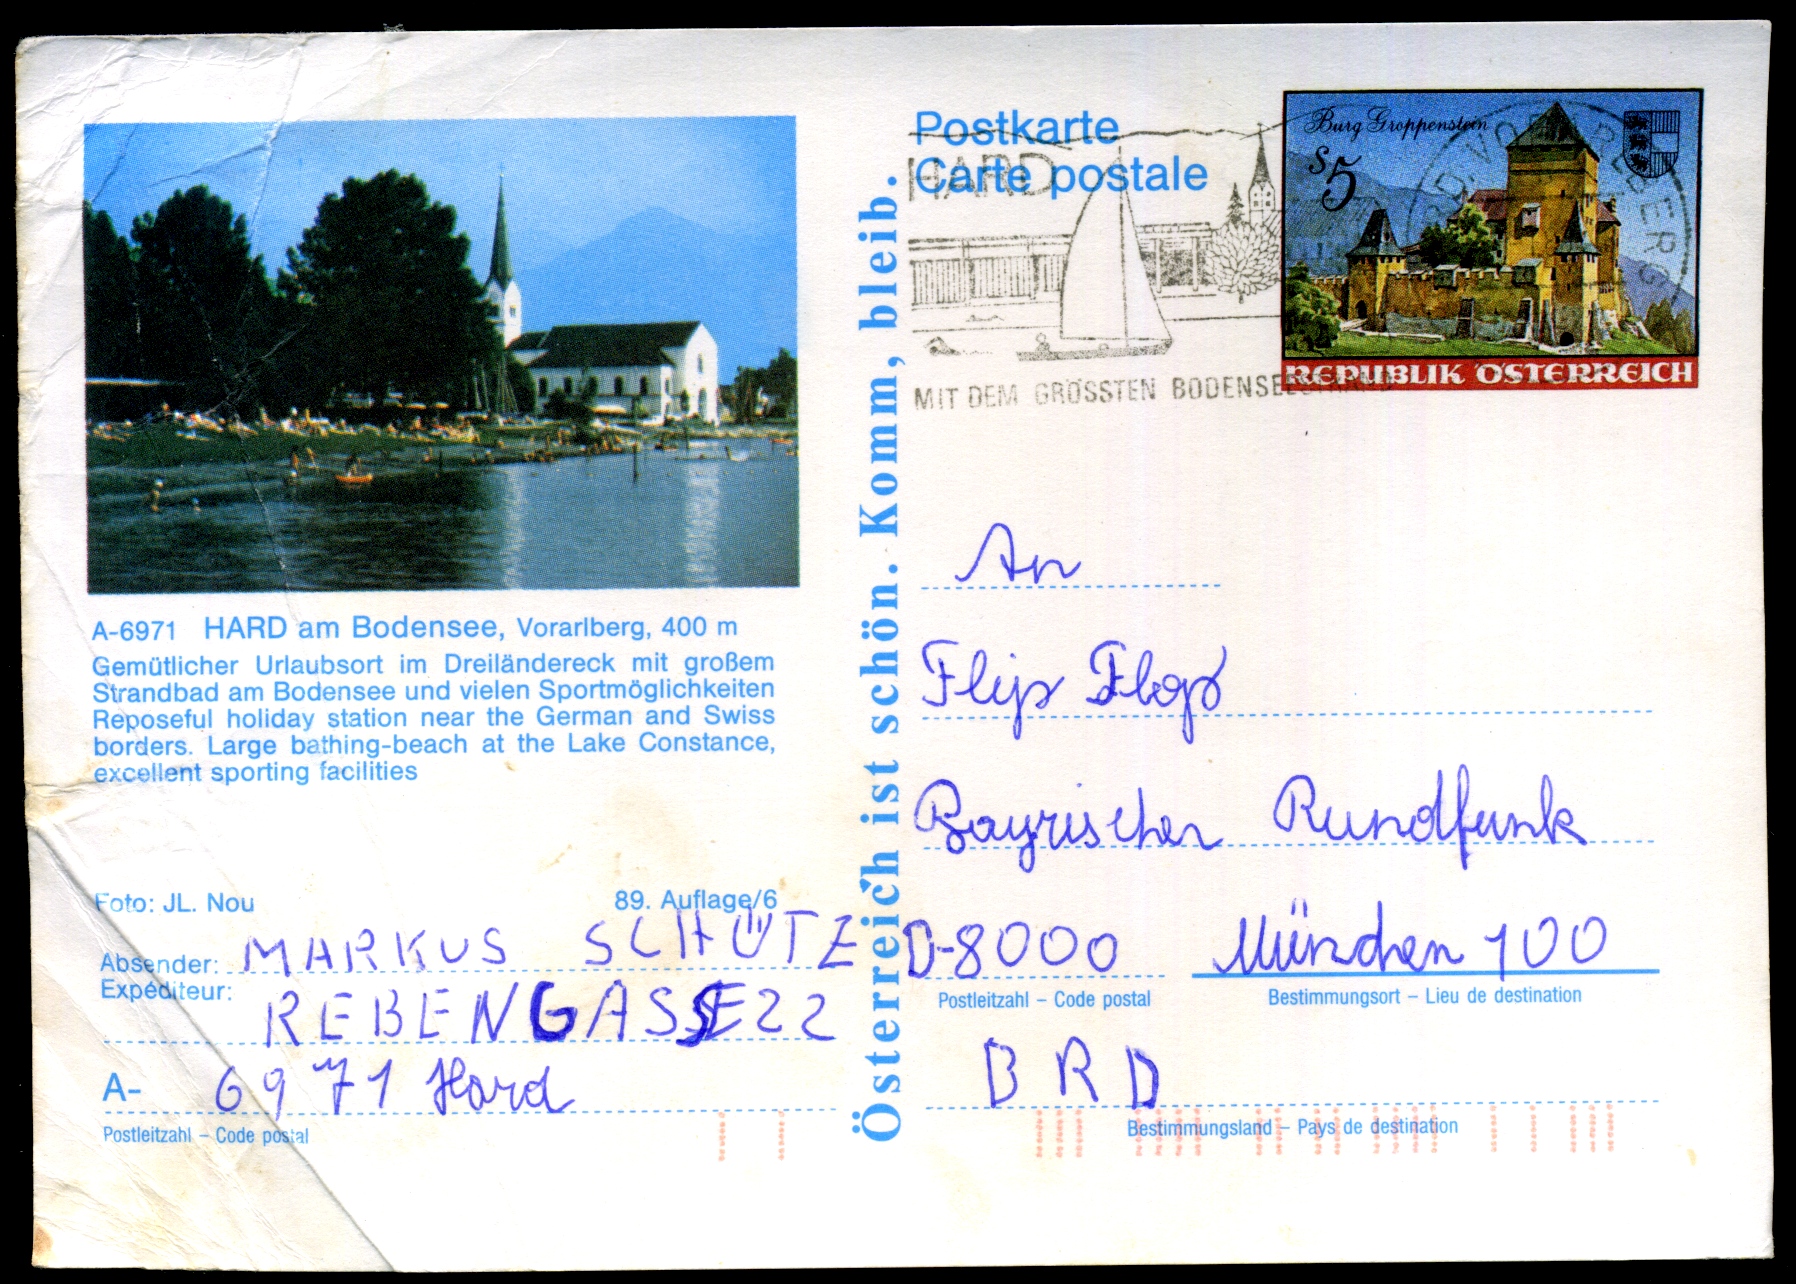 Postkarte
Carte postale
HARD
MIT DEM GRÖSSTEN BODENSEESTRAND
Burg Groppenstein
S5
REPUBLIK ÖSTERREICH
VORARLBERG
A-6971 HARD am Bodensee, Vorarlberg, 400 m
Gemütlicher Urlaubsort im Dreiländereck mit großem
Strandbad am Bodensee und vielen Sportmöglichkeiten
Reposeful holiday station near the German and Swiss
borders. Large bathing-beach at the Lake Constance,
excellent sporting facilities
Foto: JL. Nou
89. Auflage/6
Absender: MARKUS SCHÜTZ
Expéditeur:
REBENGASSE 22
A- 6971 Hard
Postleitzahl – Code postal
Österreich ist schön. Komm, bleib.
An
Flip Flop
Bayrischer Rundfunk
D-8000 München 100
Postleitzahl – Code postal
Bestimmungsort – Lieu de destination
BRD
Bestimmungsland – Pays de destination